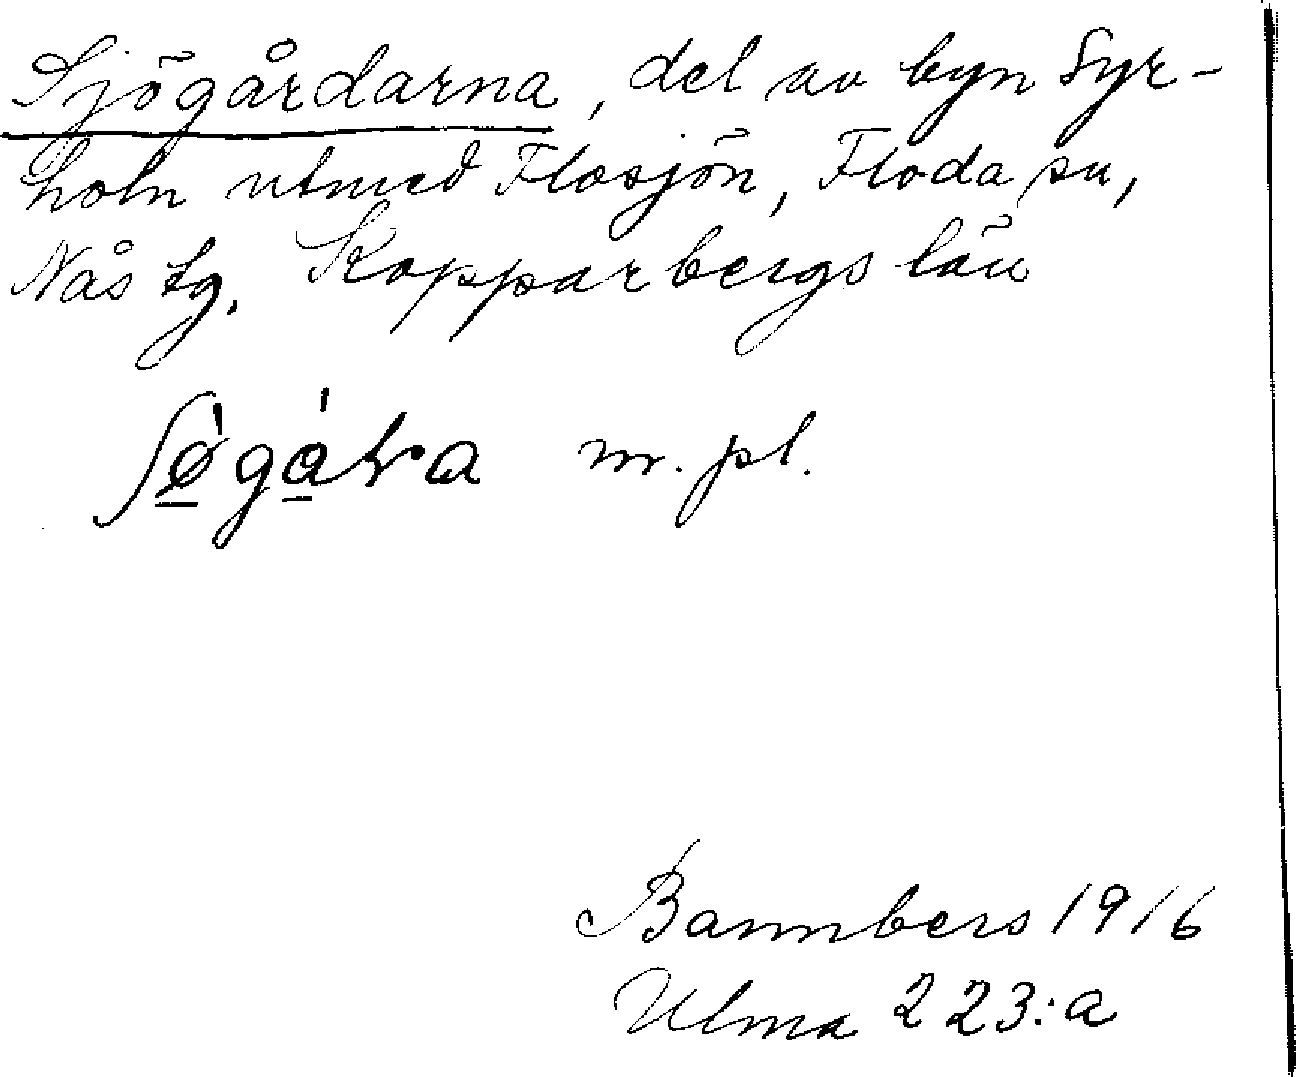 Sjögårdarna, del av byn Syr-
holn utmed Flosjön, Floda sn,
Nås tg. Kopparbergs län
m. pl.
Bannbers 1916
Ulma 223:a